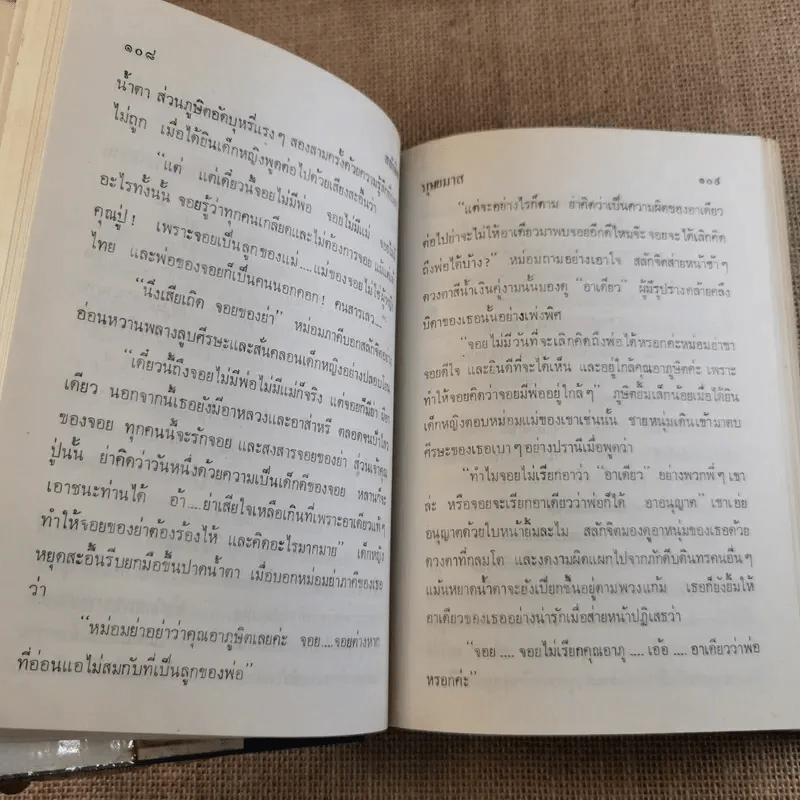 ๑๐๘
น้ำตา ส่วนภูษิตอัดบุหรี่แรงๆ สองสามครั้งด้วยความรู้สึก
ไม่ถูก เมื่อได้ยินเด็กหญิงพูดต่อไปด้วยเสียงสะอื้นว่า
“แต่ แต่เดี๋ยวนี้จอยไม่มีพ่อ จอยไม่มีแม่
อะไรทั้งนั้น จอยรู้ว่าทุกคนเกลียดและไม่ต้องการจอย
คุณปู่! เพราะจอยเป็นลูกของแม่....แม่ของจอยไม่ใช่
ไทย และพ่อของจอยก็เป็นคนนอกคอก! คนสารเลว....”
“นิ่งเสียเถิด จอยของย่า” หม่อมภาคีบอกสลักจิตอย่าง
อ่อนหวานพลางลูบศีรษะและสั่นคลอนเด็กหญิงอย่างปลอบโยน
“เดี๋ยวนี้ถึงจอยไม่มีพ่อไม่มีแม่ก็จริง แต่จอยก็มีย่า มีอา
เดียว นอกจากนี้เธอยังมีอาหลวงและอาสำหรี ตลอดจน
ของจอย ทุกคนนี้จะรักจอย และสงสารจอยของย่า ส่วนเจ้าคุณ
ปู่นั้น ย่าคิดว่าวันหนึ่งด้วยความเป็นเด็กดีของจอย หลานก็จะ
เอาชนะท่านได้ อ้า....ย่าเสียใจเหลือเกินที่เพราะอาเดียวแท้ๆ
ทำให้จอยของย่าต้องร้องไห้ และคิดอะไรมากมาย” เด็กหญิง
หยุดสะอื้นรีบยกมือขึ้นปาดน้ำตา เมื่อบอกหม่อมย่าภาคีของเธอ
ว่า
“หม่อมย่าอย่าว่าคุณอาภูษิตเลยค่ะ จอย....จอยต่างหาก
ที่อ่อนแอไม่สมกับที่เป็นลูกของพ่อ”
บุษยมาส
๑๐๙
“แต่จะอย่างไรก็ตาม ย่าคิดว่าเป็นความผิดของอาเดียว
ต่อไปย่าจะไม่ให้อาเดียวมาพบจอยอีกดีไหมจ๊ะ จอยจะได้เลิกคิด
ถึงพ่อได้บ้าง?” หม่อมถามอย่างเอาใจ สลักจิตส่ายหน้าช้าๆ
ดวงตาสีน้ำเงินคู่งามนั้นมองดู “อาเดียว” ผู้มีรูปร่างคล้ายคลึง
บิดาของเธอนั้นอย่างเพ่งพิศ
“จอยไม่มีวันที่จะเลิกคิดถึงพ่อได้หรอกค่ะหม่อมย่าขา
จอยดีใจ และยินดีที่จะได้เห็น และอยู่ใกล้คุณอาภูษิตค่ะ เพราะ
ทำให้จอยคิดว่าจอยมีพ่ออยู่ใกล้ๆ” ภูษิตยิ้มเล็กน้อยเมื่อได้ยิน
เด็กหญิงตอบหม่อมแม่ของเขาเช่นนั้น ชายหนุ่มเดินเข้ามาตบ
ศีรษะของเธอเบาๆ อย่างปรานีเมื่อพูดว่า
“ทำไมจอยไม่เรียกอาว่า “อาเดียว” อย่างพวกพี่ๆ เขา
ล่ะ หรือจอยจะเรียกอาเดียวว่าพ่อก็ได้ อาอนุญาต” เขาเอ่ย
อนุญาตด้วยใบหน้ายิ้มละไม สลักจิตมองดูอาหนุ่มของเธอด้วย
ดวงตาที่กลมโต และงดงามผิดแผกไปจากภักดีบดินทรคนอื่นๆ
แม้นหยาดน้ำตาจะยังเปียกชื้นอยู่ตามพวงแก้ม เธอก็ยังยิ้มให้
อาเดียวของเธออย่างน่ารักเมื่อส่ายหน้าปฏิเสธว่า
“จอย.... จอยไม่เรียกคุณอาภู .... เอ้อ .... อาเดียวว่าพ่อ
หรอกค่ะ”